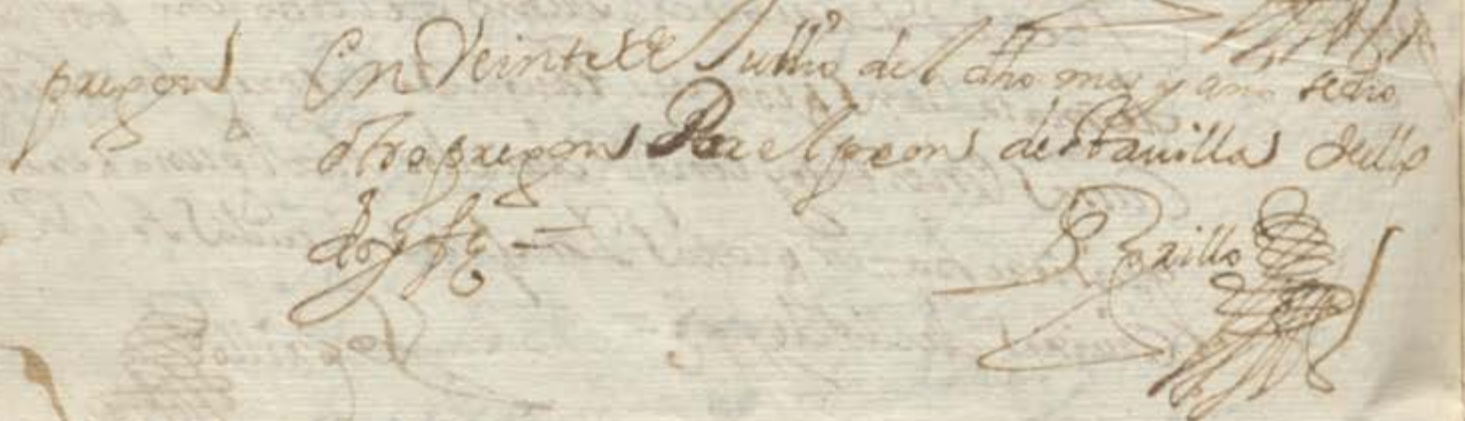 pregon
En Veinte de Julio del dho mes y año se dio
otro pregon Por el preon desta uilla dello
doy fe =
Bonillo